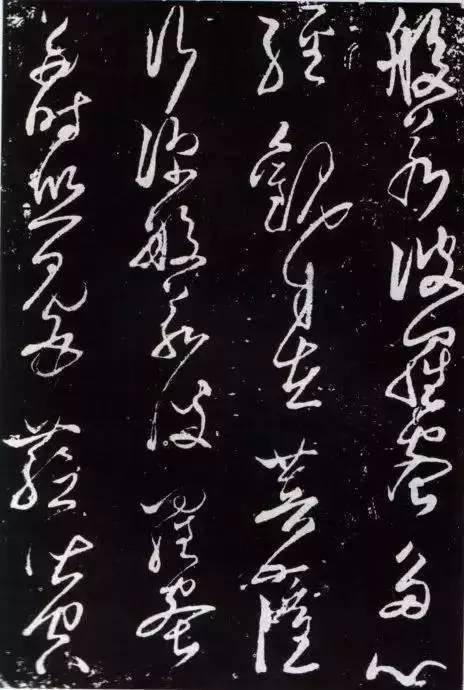 般若波羅蜜多心
經觀自在菩薩
行深般若波羅蜜
多時照見五蘊皆空